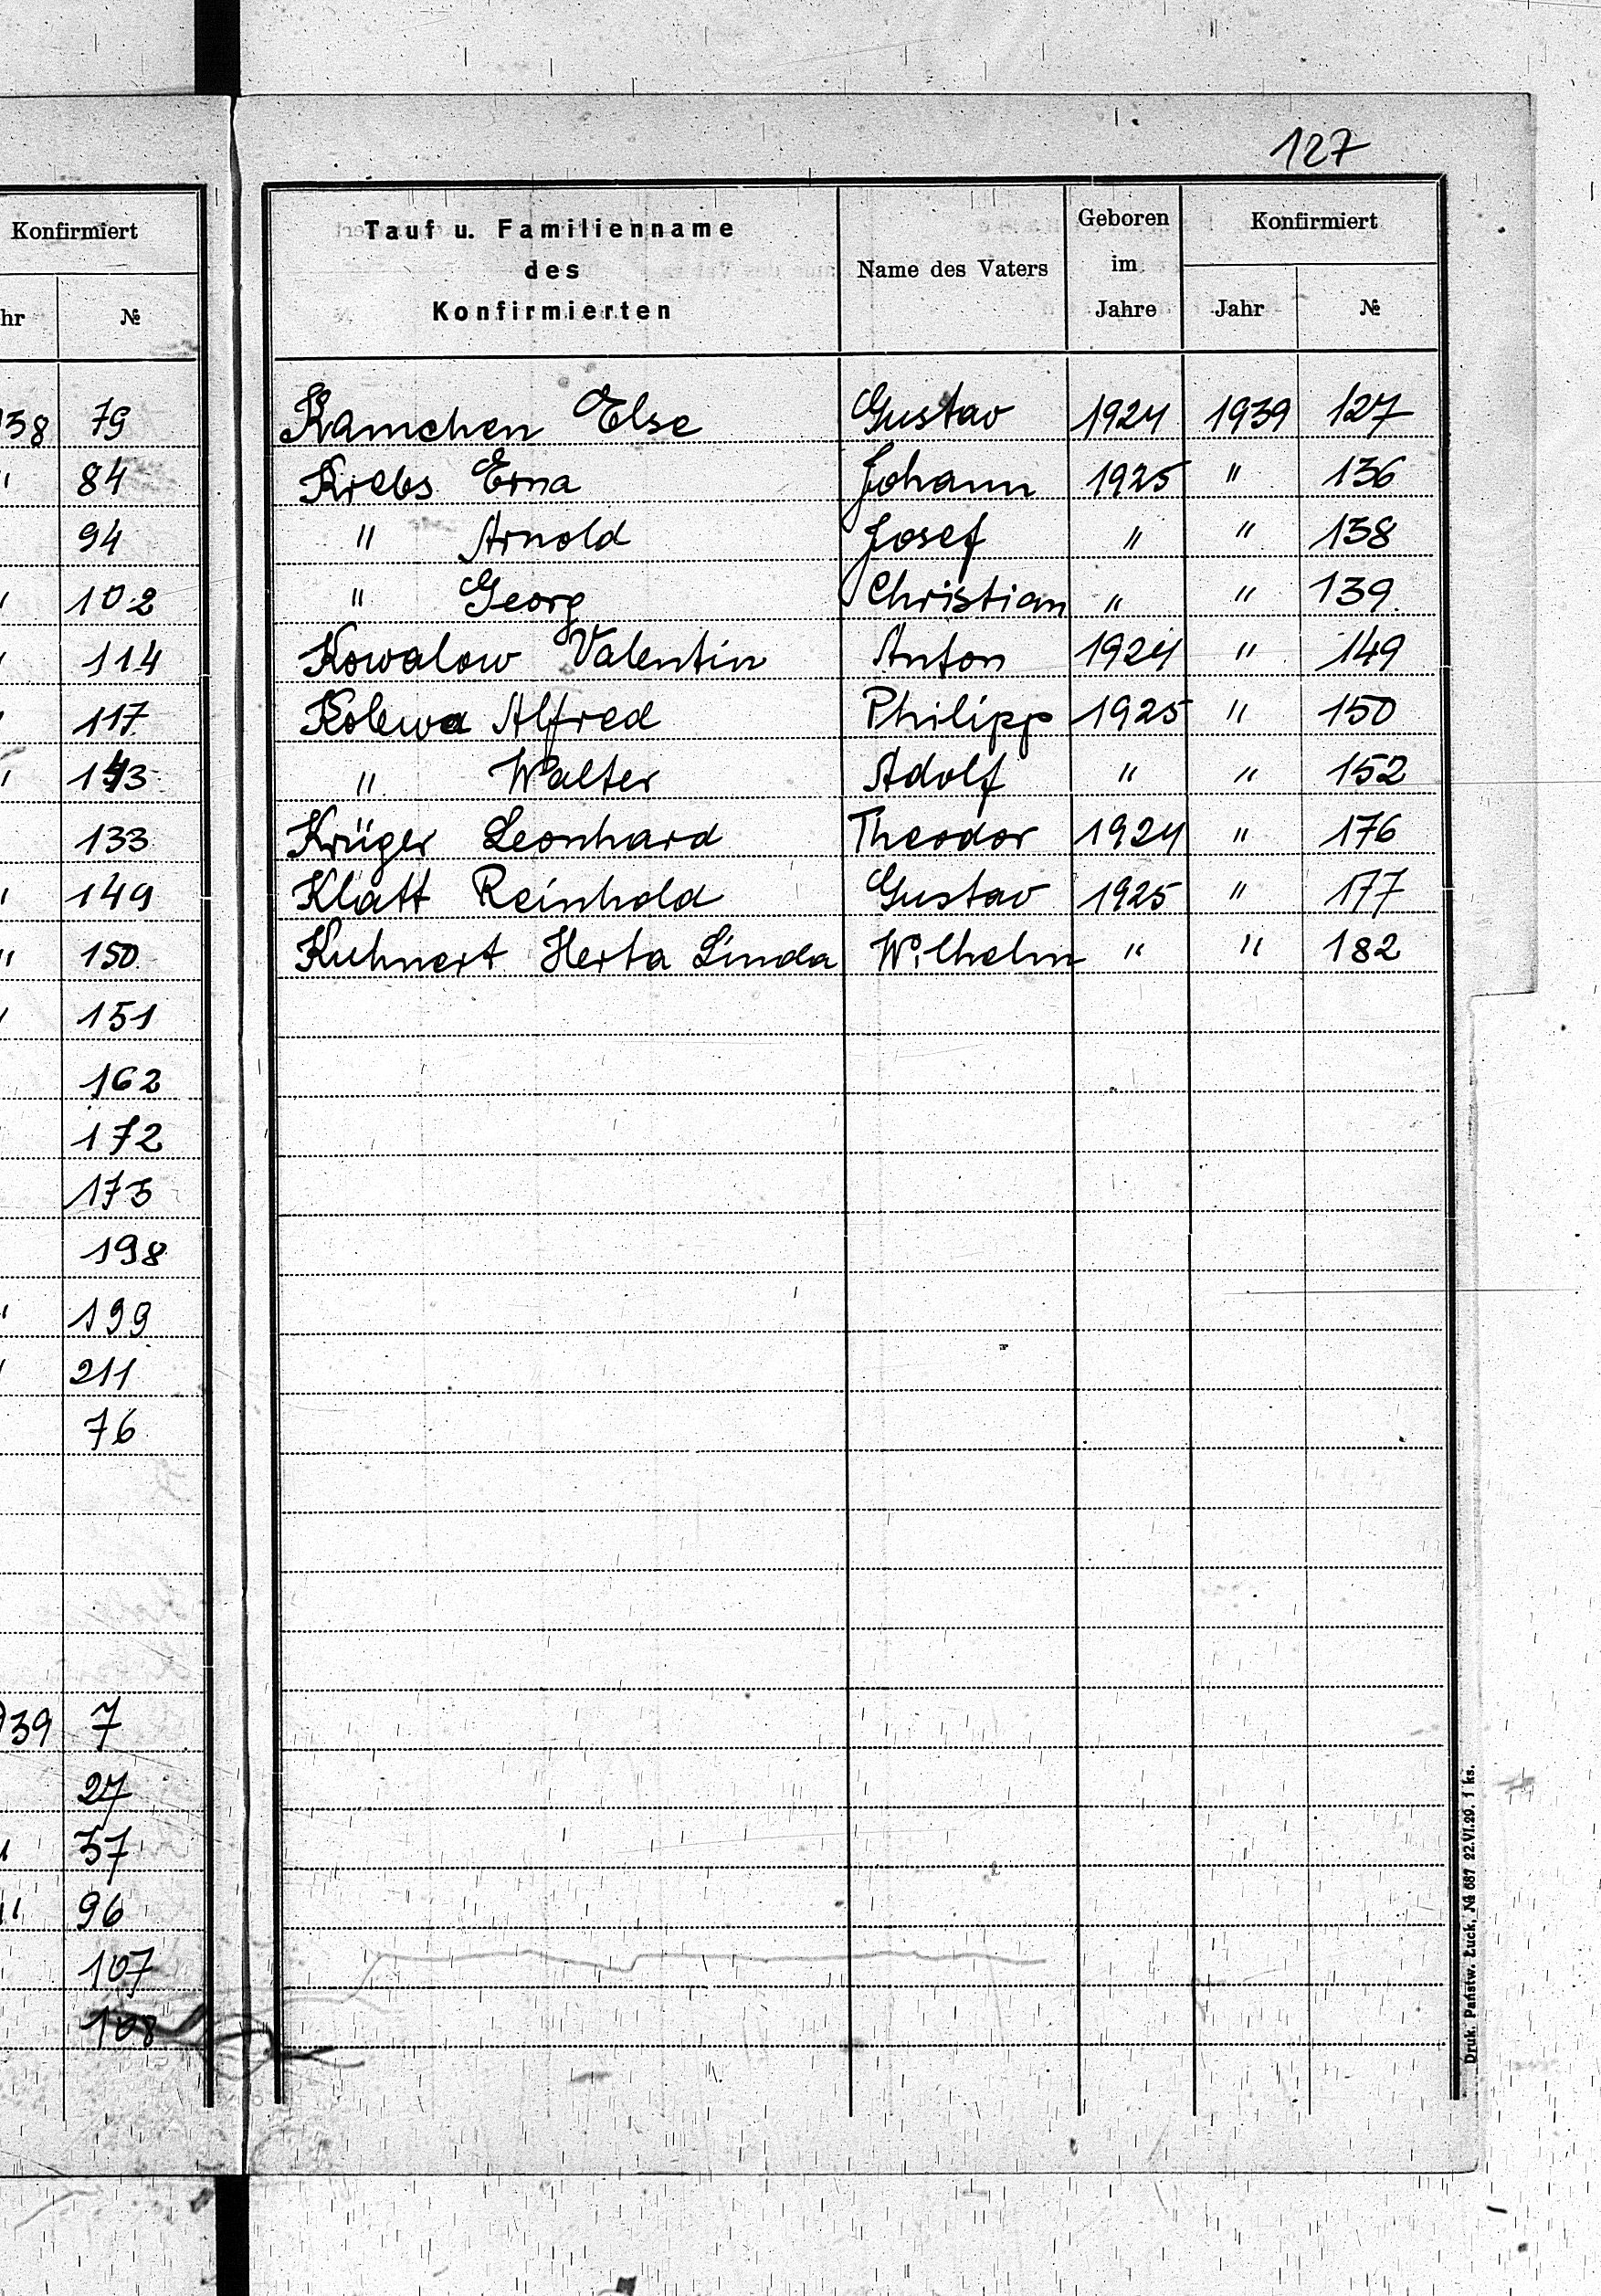 Konfirmiert
hr №
938 79
" 84
94
" 102
" 114
" 117
" 143
133
" 149
" 150
" 151
162
172
173
198
" 199
" 211
76
939 7
27
" 37
" 96
107
108
127
Tauf u. Familienname des Konfirmierten Name des Vaters Geboren im Jahre Konfirmiert
Jahr №
Kamchen Else Gustav 1924 1939 127
Krebs Erna Johann 1925 " 136
" Arnold Josef " " 138
" Georg Christian " " 139
Kowalow Valentin Anton 1924 " 149
Kolewa Alfred Philipp 1925 " 150
" Walter Adolf " " 152
Krüger Leonhard Theodor 1924 " 176
Klatt Reinhold Gustav 1925 " 177
Kuhnert Herta Linda Wilhelm " " 182
Druk. Państw. Łuck, № 687 22.VI.29. 1 ks.